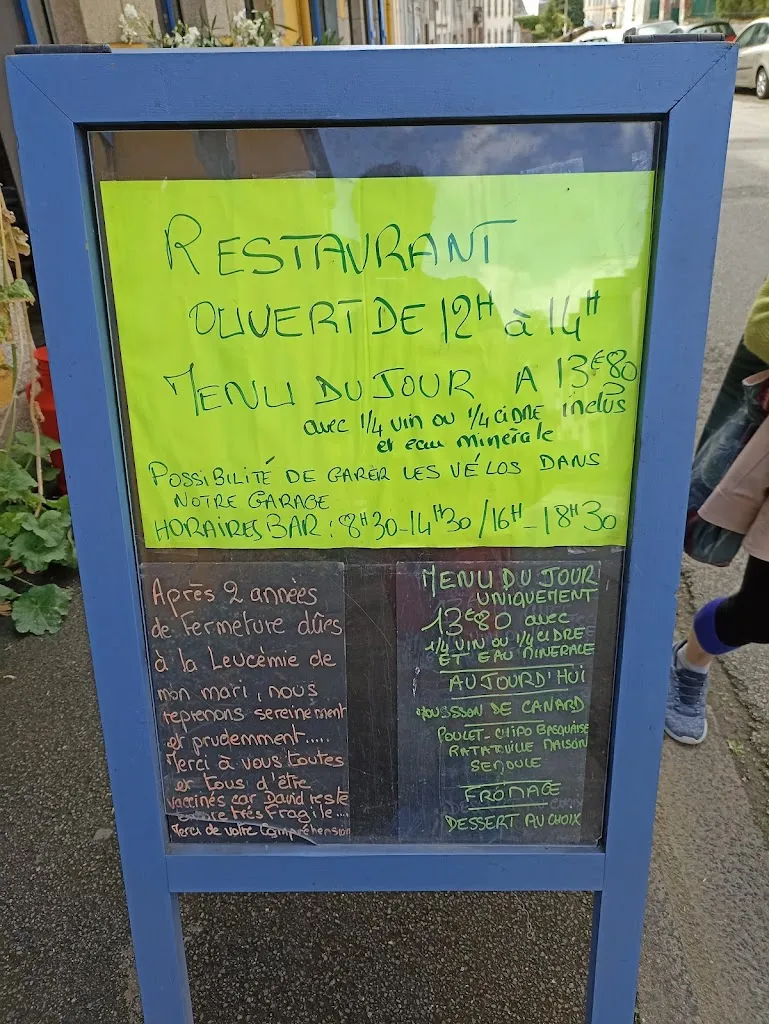 RESTAURANT
OUVERT DE 12H à 14H
MENU DU JOUR A 13€80
avec 1/4 vin ou 1/4 cidre inclus
et eau minérale
POSSIBILITÉ DE GARER LES VÉLOS DANS
NOTRE GARAGE
HORAIRES BAR : 8H30-14H30 / 16H-18H30
Après 2 années
de Fermeture dûes
à la Leucémie de
mon mari, nous
reprenons sereinement
et prudemment.....
Merci à vous toutes
et tous d'être
vaccinés car David reste
encore très Fragile....
Merci de votre Compréhension
MENU DU JOUR
UNIQUEMENT
13€80 avec
1/4 VIN OU 1/4 CIDRE
ET EAU MINERALE
AUJOURD'HUI
MOUSSSON DE CANARD
POULET-CHIPO BASQUAISE
RATATUILLE MAISON
SEMOULE
FROMAGE
DESSERT AU CHOIX